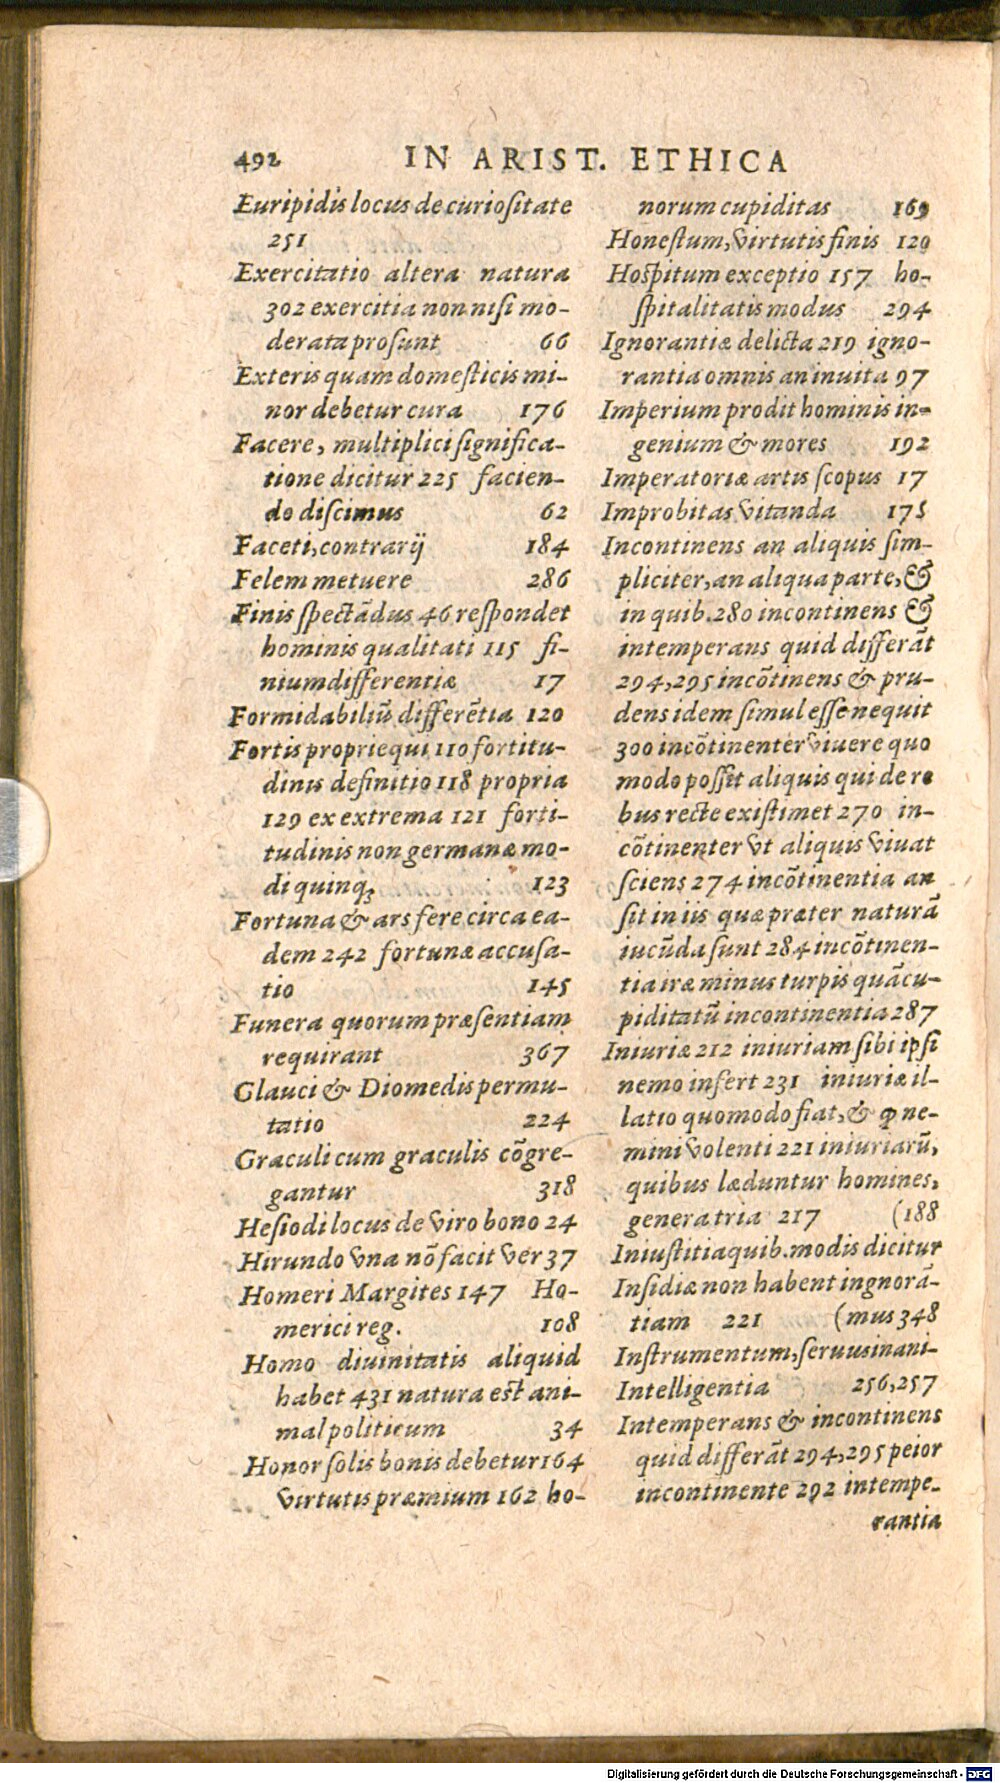 492 IN ARIST. ETHICA
Euripidis locus de curiositate
251
Exercitatio altera natura
302 exercitia non nisi mo-
derata prosunt 66
Exteris quam domesticis mi-
nor debetur cura 176
Facere, multiplici significa-
tione dicitur 225 facien-
do discimus 62
Faceti, contrarij 184
Felem metuere 286
Finis spectãdus 46 respondet
hominis qualitati 115 fi-
nium differentiæ 17
Formidabiliũ differẽtia 120
Fortis proprie qui 110 fortitu-
dinis definitio 118 propria
129 ex extrema 121 forti-
tudinis non germanæ mo-
di quinq; 123
Fortuna & ars fere circa ea-
dem 242 fortunæ accusa-
tio 145
Funera quorum præsentiam
requirant 367
Glauci & Diomedis permu-
tatio 224
Graculi cum graculis cõgre-
gantur 318
Hesiodi locus de viro bono 24
Hirundo vna nõ facit ver 37
Homeri Margites 147 Ho-
merici reg. 108
Homo diuinitatis aliquid
habet 431 natura est ani-
mal politicum 34
Honor solis bonis debetur 164
virtutis præmium 162 ho-
norum cupiditas 169
Honestum, virtutis finis 129
Hospitum exceptio 157 ho-
spitalitatis modus 294
Ignorantiæ delicta 219 igno-
rantia omnis an inuita 97
Imperium prodit hominis in-
genium & mores 192
Imperatoriæ artis scopus 17
Improbitas vitanda 175
Incontinens an aliquis sim-
pliciter, an aliqua parte, &
in quib. 280 incontinens &
intemperans quid differãt
294,295 incõtinens & pru-
dens idem simul esse nequit
300 incõtinenter viuere quo
modo possit aliquis qui de re
bus recte existimet 270 in-
cõtinenter vt aliquis viuat
sciens 274 incõtinentia an
sit in iis quæ præter naturã
iucũda sunt 284 incõtinen-
tia iræ minus turpis quã cu-
piditatũ incontinentia 287
Iniuriæ 212 iniuriam sibi ipsi
nemo infert 231 iniuriæ il-
latio quomodo fiat, & ꝙ ne-
mini volenti 221 iniuriarũ,
quibus læduntur homines,
genera tria 217 (188
Iniustitia quib. modis dicitur
Insidiæ non habent ingnorã-
tiam 221 (mus 348
Instrumentum, seruus inani-
Intelligentia 256,257
Intemperans & incontinens
quid differãt 294,295 peior
incontinente 292 intempe-
rantia
Digitalisierung gefördert durch die Deutsche Forschungsgemeinschaft - DFG